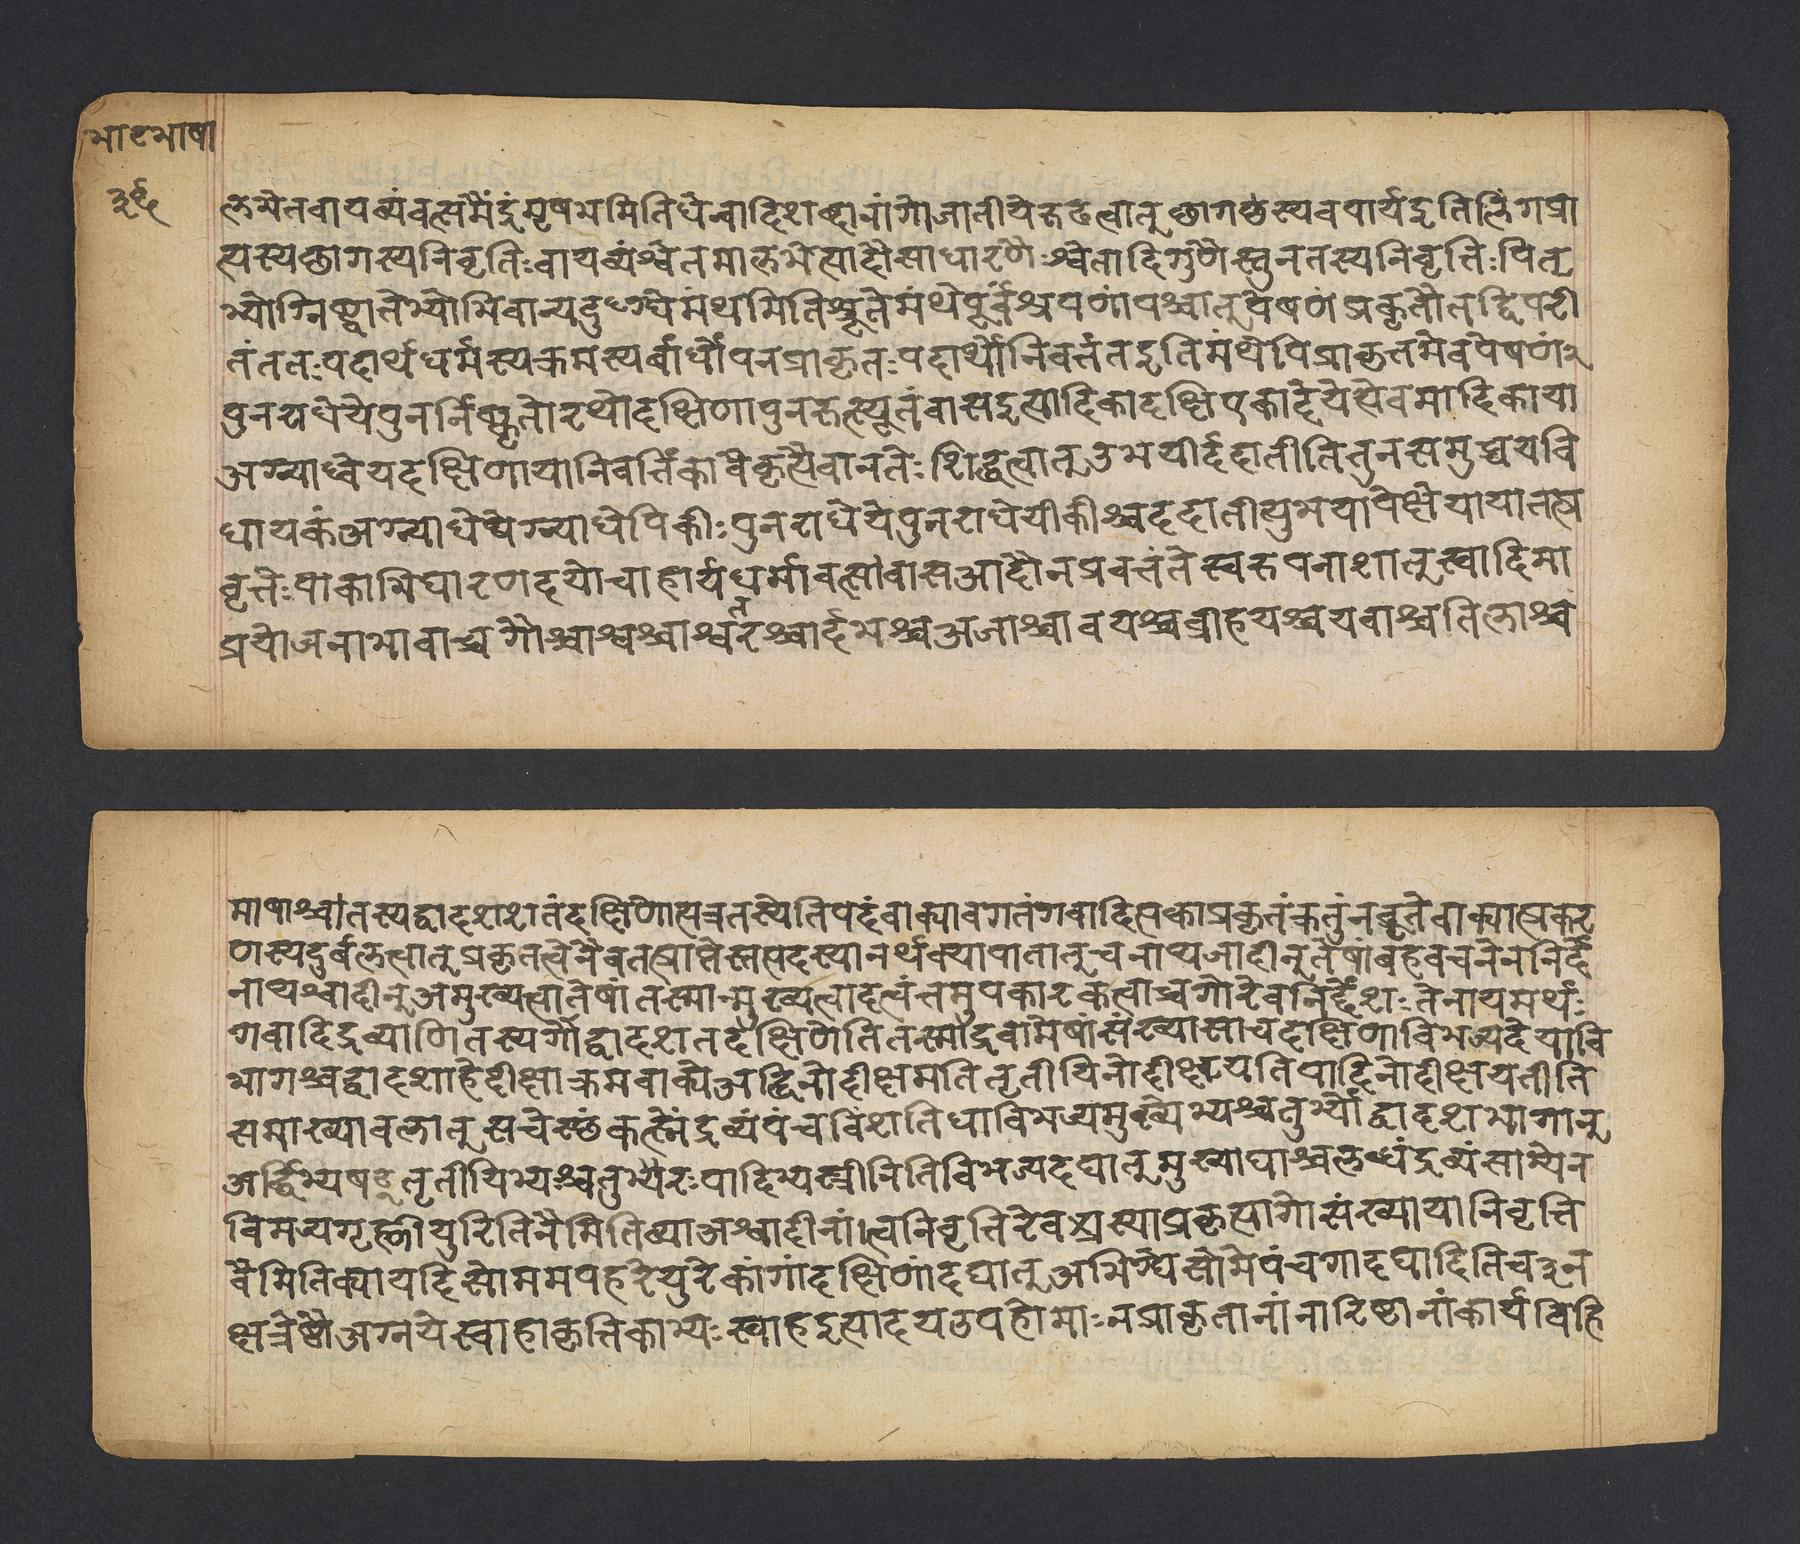 भाटभाषा
३९
लभेतवायव्यंवत्समैंद्रंमृषभमितिधेन्वादिशब्दानांगोजातीयेरूढत्वात्छागष्ठस्यवपार्यइतिलिंगप्रा
त्यस्यछागस्यनिवृतिःवायव्यंश्वेतमालभेत्यादौसाधारणैःश्वेतादिगुणैस्तुनतस्यनिवृत्तिःपितृ
भ्योग्निष्वातेभ्योभिवान्यदुग्घेमंथमितिश्रूतेमंथेपूर्वंश्रपणंपश्चात्पेषणंप्रकृतौतद्विपरी
तंततःपदार्थधर्मस्यक्रमस्यबाधोपनप्राकृतःपदार्थोनिवर्त्ततइतिमंथेपिप्राकृतमेवपेषणं१
पुनराधेयेपुनर्निष्कृतोरथोदक्षिणापुनरूत्स्यूतंवासइत्यादिकादक्षिणकाहेयेत्येवमादिकाया
अग्न्याध्वेयदक्षिणायानिवर्तिकावैकृत्यैवानतेःसिद्धत्वात्उभयीर्ददातीतितुनसमुच्चयवि
धायकंअग्न्याधेधेग्न्याधेपिकीःपुनराधेयेपुनराधेयीकीश्चददातीत्युभयापेक्षेयायातत्प्र
वृत्तेःपाकाभिघारणदयोचाहार्यधर्मावत्सावासआदौनप्रवर्त्तंतेस्वरूपनाशात्स्वादिमा
प्रयोजनाभावाच्चगौश्चाश्वश्चाश्वतरश्चार्दभश्चअजाश्चावयश्चव्रीहयश्चयवाश्चतिलाश्च
माषाश्चातस्यद्वादशशतंदक्षिणेत्यत्रतस्येतिपदंवाक्यावगतंगवादित्यक्त्काप्रकृतंक्रतुंनब्रूतेवाक्यात्प्रकर
णस्यदुर्बलत्वात्प्रकृतत्वेनैवतत्प्राप्तेस्तत्पदस्यानर्थक्यापातात्चनाप्यजादीन्तेषांबहुवचनेननिर्दे
नाप्यश्वादीन्अमुख्यत्वातेषांतस्मान्मुख्यत्वादत्यंतमुपकारकत्वाच्चगोरेवनिर्द्देशःतेनायमर्थः
गवादिद्रव्याणितस्यगोर्द्वादशतदक्षिणेतितस्माद्गवामेषांसंख्यासाचदक्षिणाविभज्यदेयावि
भागश्चद्वादशाहेदीक्षाक्रमवाक्येअर्द्धिनोदीक्षमतितृतीयिनोदीक्षयतिपादिनोदीक्षयतीति
समाख्याबलात्सचेस्छंकत्स्नंद्रव्यंपंचविंशतिधाविभज्यमुख्येभ्यश्चतुर्भ्योद्वादशभागान्
अर्द्धिभ्यषट्तृतीयिभ्यःश्चतुर्भ्यैरःपादिभ्यस्त्रीनितिविभज्यदद्यात्मुख्याघाश्चलब्धंद्रव्यंसाम्येन
विमज्यगृह्णीयुरितिनैमितिक्याअश्वादीनांत्यनिवृतिरेवअस्याप्रकृत्यागोसंख्यायानिवृत्ति
नैमितिक्यायदिसोममपहरेयुरेकांगांदक्षिणांदद्यात्अभिग्धेसोमेपंचगादद्यादितिचइन
क्षत्रेष्टौअग्नयेस्वाहाकृत्तिकाभ्यःस्वाहइत्यादयउपहोमाःनप्राकृतानांनारिष्टानांकार्यविहि